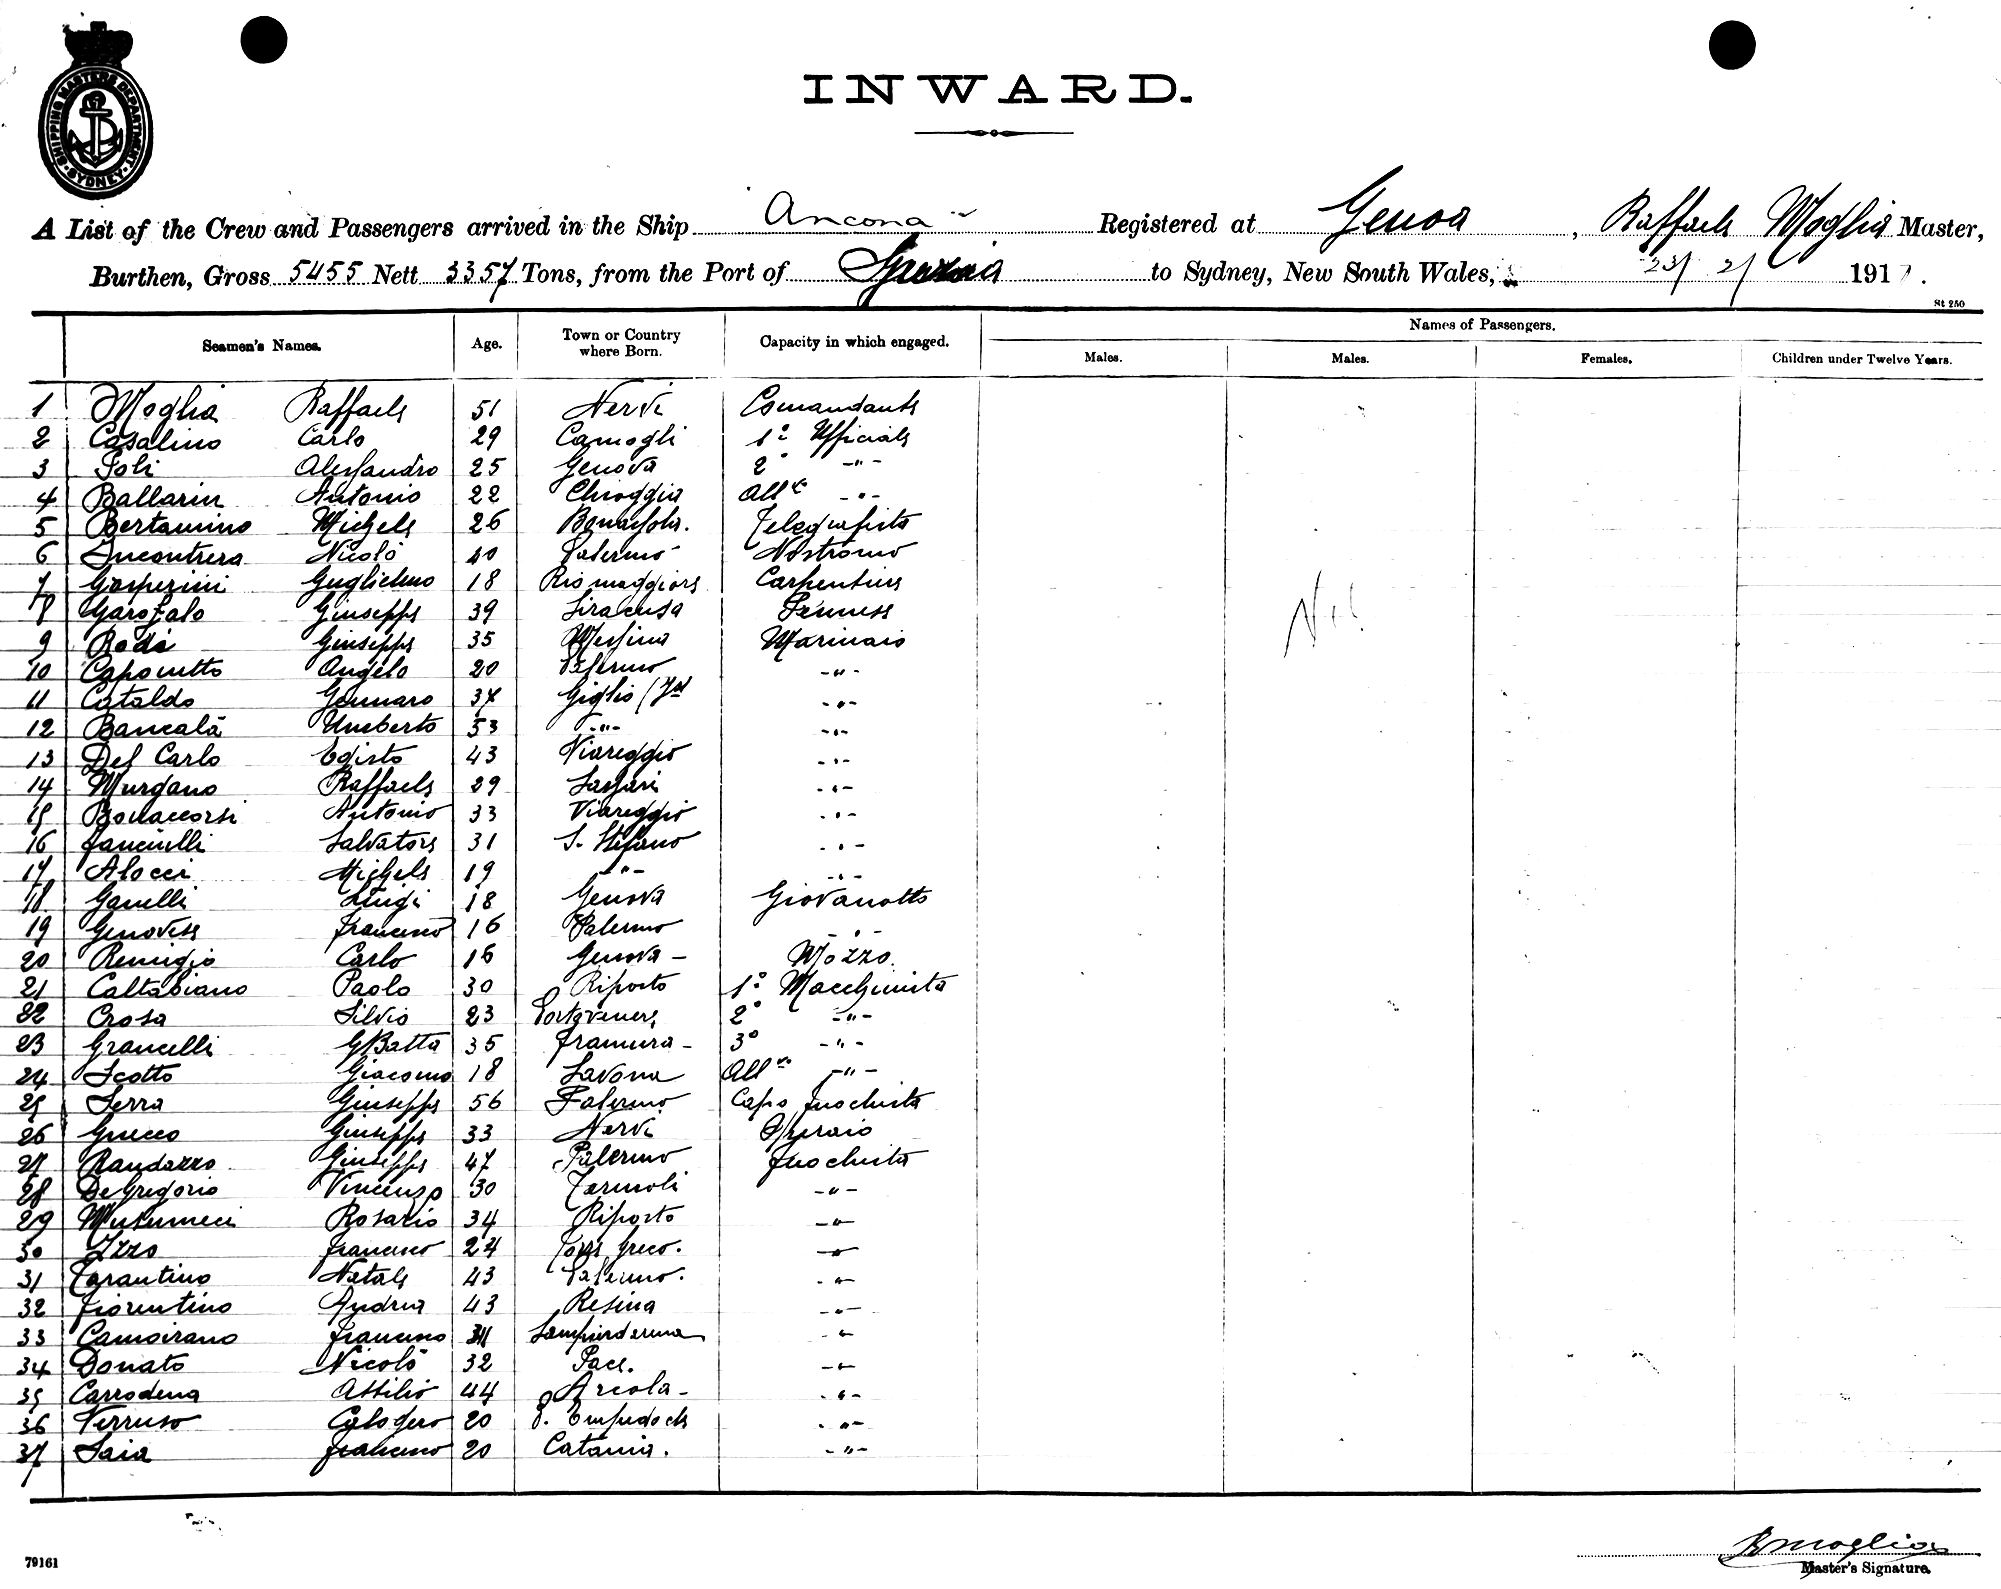 SHIPPING MASTERS DEPARTMENT SYDNEY
INWARD.
A List of the Crew and Passengers arrived in the Ship Ancona Registered at Genoa, Raffaele Moglia Master,
Burthen, Gross 5455 Nett 3357 Tons, from the Port of to Sydney, New South Wales, 23/2/ 191
St 250
Seamen's Names. Age. Town or Country where Born. Capacity in which engaged. Names of Passengers.
Males. Males. Females. Children under Twelve Years.
1 Moglia Raffaele 51 Nervi Comandante
2 Casalino Carlo 29 Camogli 1° Ufficiale
3 Poli Alessandro 25 Genova 2° -"-
4 Ballarin Antonio 22 Chioggia All° -"-
5 Bertamino Michele 26 Bonassola. Telegrafista
6 Incontrera Nicolò 40 Palermo Nostromo
7 Gasperini Guglielmo 18 Riomaggiore Carpentiere
8 Garofalo Giuseppe 39 Siracusa
9 Rodà Giuseppe 35 Messina Marinaio
10 Caponetto Angelo 20 Palermo -"-
11 Cataldo Gennaro 37 Giglio -"-
12 Bancalà Umberto 53 -"- -"-
13 Del Carlo Egisto 43 Viareggio -"-
14 Murgano Raffaele 29 Sassari -"-
15 Bonaccorsi Antonio 33 Viareggio -"-
16 Fanciulli Salvatore 31 S. Stefano -"-
17 Alocci Michele 19 -"- -"-
18 Ganelli Luigi 18 Genova Giovanotto
19 Genovese Francesco 16 Palermo -"-
20 Remigio Carlo 16 Genova - Mozzo.
21 Caltabiano Paolo 30 Riposto 1° Macchinista
22 Crosa Silvio 23 Portovenere 2° -"-
23 Grancelli GBatta 35 Framura - 3° -"-
24 Scotto Giacomo 18 Savona All° -"-
25 Serra Giuseppe 56 Palermo Capo fuochista
26 Grecco Giuseppe 33 Nervi Operaio
27 Randazzo Giuseppe 47 Palermo fuochista
28 De Gregorio Vincenzo 30 Termoli -"-
29 Musumeci Rosario 34 Riposto -"-
30 Izzo Francesco 24 Torre Greco. -"-
31 Tarantino Natale 43 Palermo. -"-
32 Fiorentino Andrea 43 Resina -"-
33 Camoirano Francesco Sampierdarena -"-
34 Donato Nicolò 32 Pace. -"-
35 Carrodena Attilio 44 Arcola - -"-
36 Verruso Calogero 20 P. Empedocle -"-
37 Saia Francesco 20 Catania. -"-
Nil
RMoglia
Master's Signature.
79161